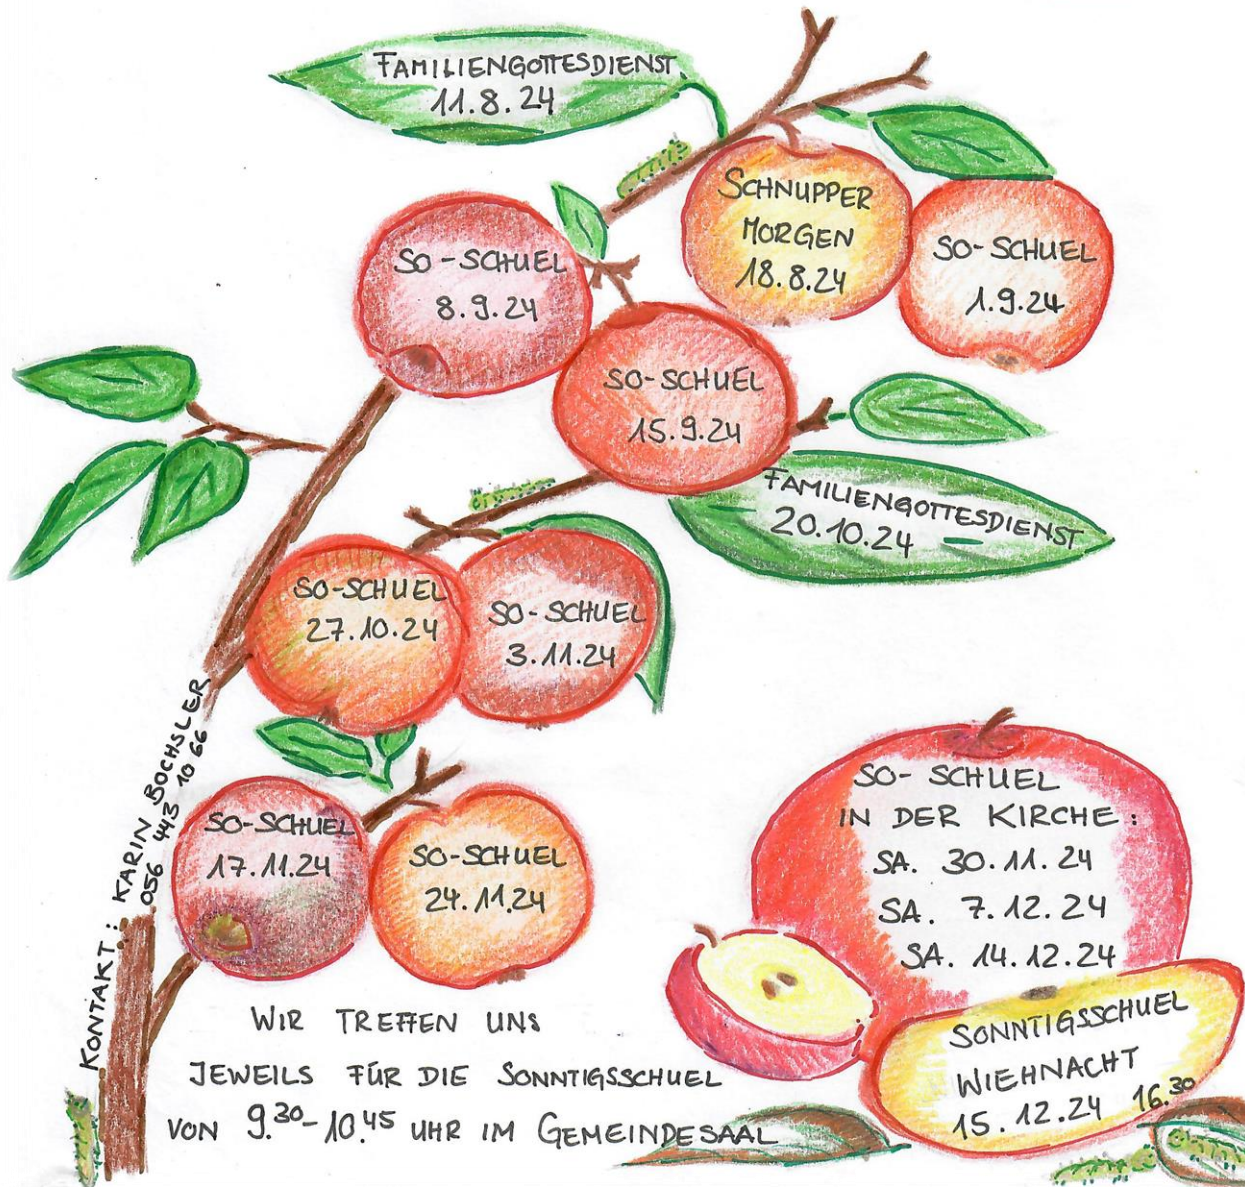 FAMILIENGOTTESDIENST
11.8.24
SCHNUPPER
MORGEN
18.8.24
SO-SCHUEL
1.9.24
SO-SCHUEL
8.9.24
SO-SCHUEL
15.9.24
FAMILIENGOTTESDIENST
20.10.24
SO-SCHUEL
27.10.24
SO-SCHUEL
3.11.24
SO-SCHUEL
17.11.24
SO-SCHUEL
24.11.24
KONTAKT: KARIN BOCHSLER
056 443 10 66
SO-SCHUEL
IN DER KIRCHE:
SA. 30.11.24
SA. 7.12.24
SA. 14.12.24
SONNTIGSSCHUEL
WIEHNACHT
15.12.24 16.30
WIR TREFFEN UNS
JEWEILS FÜR DIE SONNTIGSSCHUEL
VON 9.30-10.45 UHR IM GEMEINDESAAL